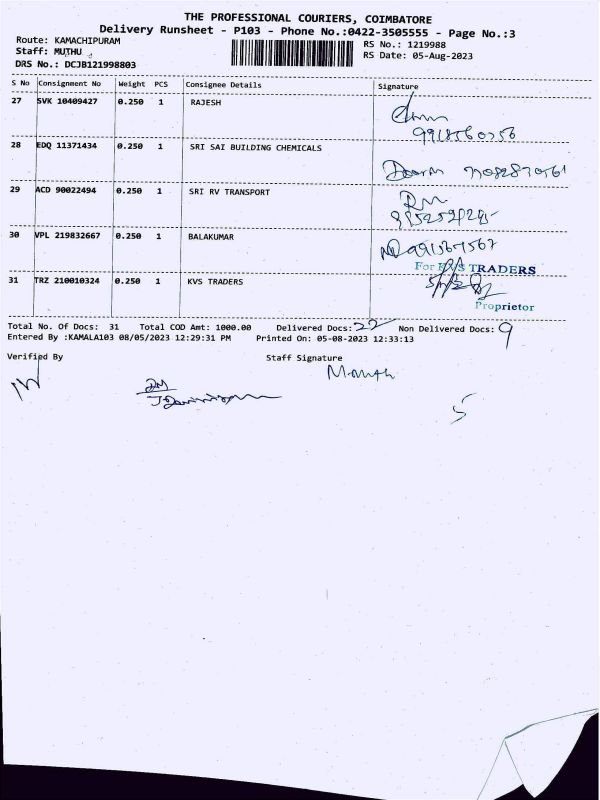 THE PROFESSIONAL COURIERS, COIMBATORE
Delivery Runsheet - P103 - Phone No.:0422-3505555 - Page No.:3
Route: KAMACHIPURAM
RS No.: 1219988
Staff: MUTHU
RS Date: 05-Aug-2023
DRS No.: DCJB121998803
S No Consignment No Weight PCS Consignee Details Signature
27 SVK 10409427 0.250 1 RAJESH
28 EDQ 11371434 0.250 1 SRI SAI BUILDING CHEMICALS
29 ACD 90022494 0.250 1 SRI RV TRANSPORT
30 VPL 219832667 0.250 1 BALAKUMAR
For KVS TRADERS
31 TRZ 210010324 0.250 1 KVS TRADERS
Proprietor
Total No. Of Docs: 31 Total COD Amt: 1000.00 Delivered Docs: 22 Non Delivered Docs: 9
Entered By :KAMALA103 08/05/2023 12:29:31 PM Printed On: 05-08-2023 12:33:13
Verified By Staff Signature